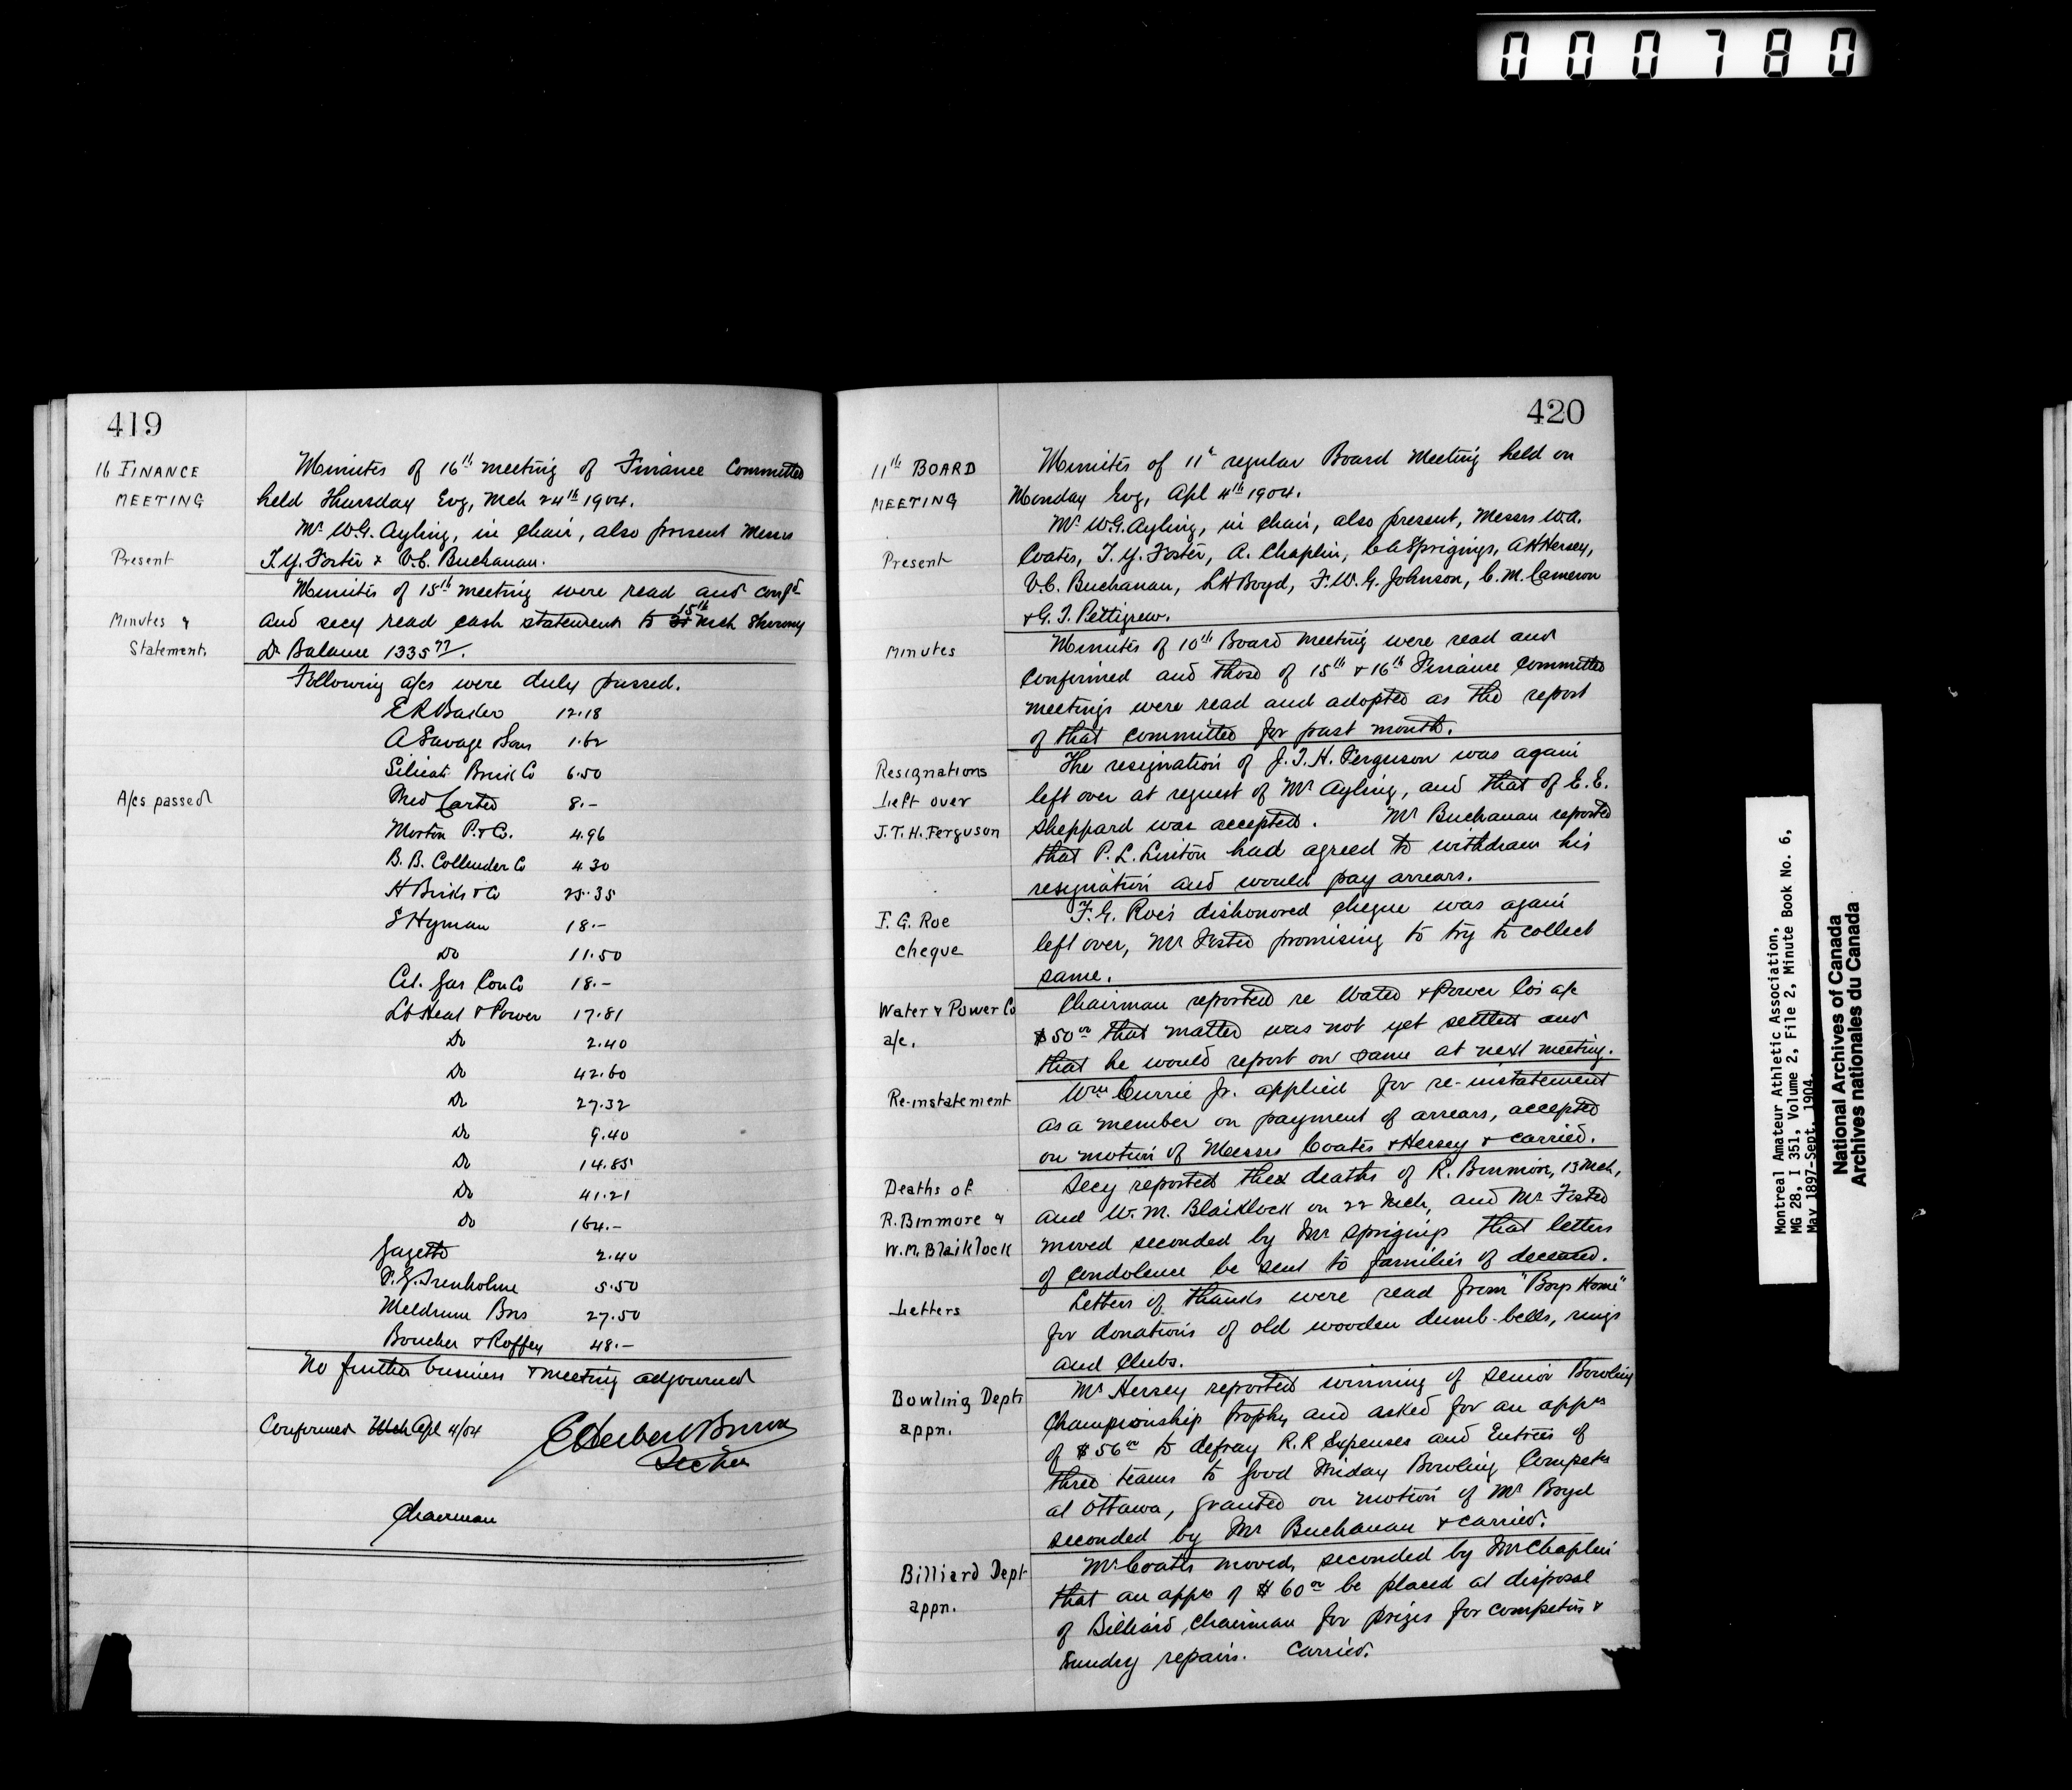 000780
419
16 FINANCE
MEETING
Minutes of 16th meeting of Finance Committee
held Thursday Evg, Mch 24th 1904.
Mr W.G. Ayling, in Chair, also present Messrs
Present
T.Y. Foster & V.C. Buchanan.
Minutes of 15th meeting were read and confd
Minutes &
and secy read cash statement to 15th Mch showing
Statement,
Dr Balance 1335 77/.
Following a/cs were duly passed.
E R Barker 12.18
A Savage & Son 1.62
Silicate Brick Co 6.50
A/cs passed
Fred Carter 8.-
Morton P. & Co. 4.96
B. B. Collender Co 4.30
H Birks & Co 25.35
S Hyman 18.-
Do 11.50
Gas Con Co 18.-
Lt Heat & Power 17.81
Do 2.40
Do 42.60
Do 27.32
Do 9.40
Do 14.85
Do 41.21
Do 164.-
Gazette 2.40
Trenholme 5.50
Meldrum Bros 27.50
Boucher & Roffey 48.-
No further business & meeting adjourned
Confirmed Mch Apl 4/04
E Herbert Brown
Secty
Chairman
420
11th BOARD
MEETING
Minutes of 11th regular Board Meeting held on
Monday Evg, Apl 4th 1904.
Mr W.G. Ayling, in Chair, also present, Messrs W.A.
Present
Coates, T.Y. Foster, A. Chaplin, C A Sprigings, A H Hersey,
V.C. Buchanan, L H Boyd, F.W.G. Johnson, C.M. Cameron
& G.T. Pettigrew.
Minutes
Minutes of 10th Board meeting were read and
confirmed and those of 15th & 16th Finance Committee
meetings were read and adopted as the report
of that committee for past month.
Resignations
Left over
J.T.H. Ferguson
The resignation of J.T.H. Ferguson was again
left over at request of Mr Ayling, and that of E.E.
Sheppard was accepted. Mr Buchanan reported
that P.L. Linton had agreed to withdraw his
resignation and would pay arrears.
F.G. Roe
cheque
F.G. Roe's dishonored cheque was again
left over, Mr Foster promising to try to collect
same.
Water & Power Co
a/c.
Chairman reported re Water & Power Co's a/c
$50 00 that matter was not yet settled and
that he would report on same at next meeting.
Re-instatement
Wm Currie Jr. applied for re-instatement
as a member on payment of arrears, accepted
on motion of Messrs Coates & Hersey & carried.
Deaths of
R. Binmore &
W.M. Blaiklock
Secy reported the deaths of R. Binmore, 13 Mch,
and W.M. Blaiklock on 22 Mch, and Mr Foster
moved seconded by Mr Sprigings that letters
of condolence be sent to families of deceased.
Letters
Letters of thanks were read from "Boys Home"
for donations of old wooden dumb-bells, rings
and Clubs.
Bowling Dept
appn.
Mr Hersey reported winning of Senior Bowling
Championship trophy and asked for an appn
of $56 00 to defray R.R Expenses and Entries of
three teams to Good Friday Bowling Competn
at Ottawa, granted on motion of Mr Boyd
seconded by Mr Buchanan & carried.
Billiard Dept
appn.
Mr Coates moved, seconded by Mr Chaplin
that an appn of $60 00 be placed at disposal
of Billiard Chairman for prizes for competns &
Sundry repairs. Carried.
Montreal Amateur Athletic Association,
MG 28, I 351, Volume 2, File 2, Minute Book No. 6,
May 1897-Sept. 1904.
National Archives of Canada
Archives nationales du Canada